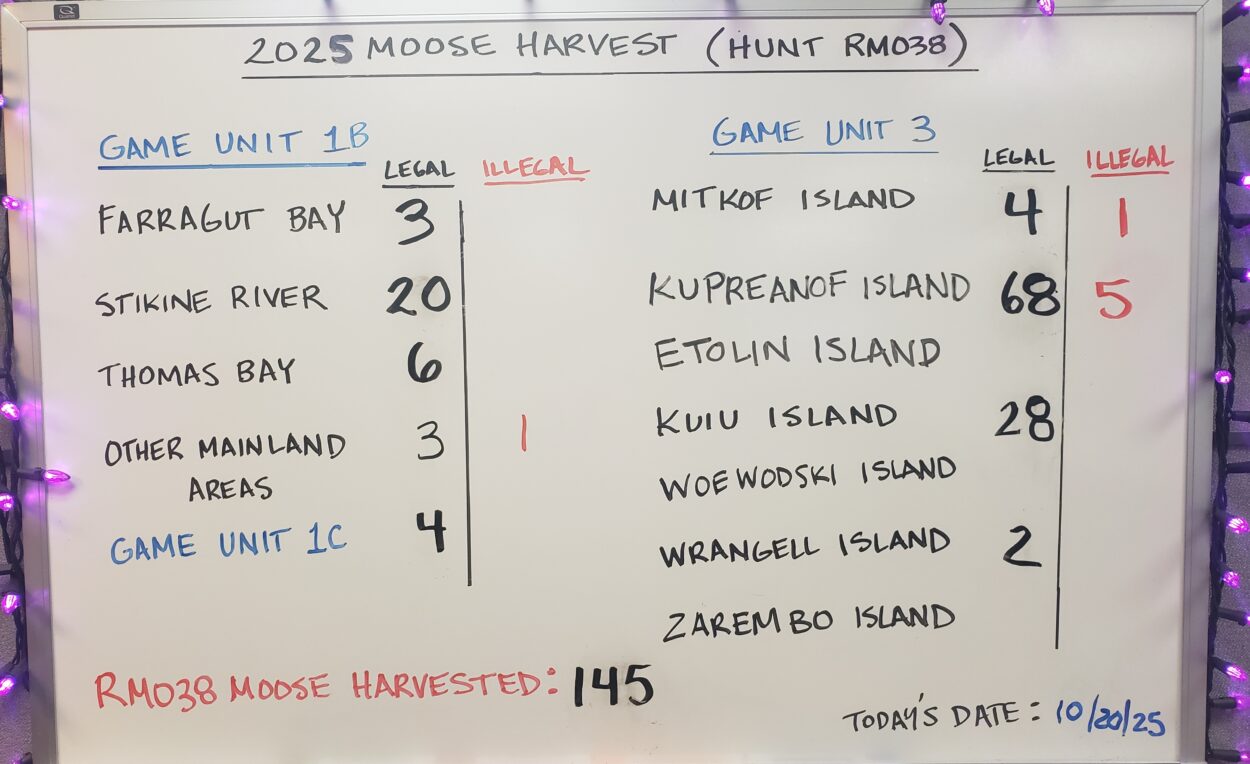 2025 MOOSE HARVEST (HUNT RM038)
GAME UNIT 1B
LEGAL ILLEGAL
FARRAGUT BAY 3
STIKINE RIVER 20
THOMAS BAY 6
OTHER MAINLAND 3 1
AREAS
GAME UNIT 1C 4
GAME UNIT 3
LEGAL ILLEGAL
MITKOF ISLAND 4 1
KUPREANOF ISLAND 68 5
ETOLIN ISLAND
KUIU ISLAND 28
WOEWODSKI ISLAND
WRANGELL ISLAND 2
ZAREMBO ISLAND
RM038 MOOSE HARVESTED: 145
TODAY'S DATE: 10/20/25